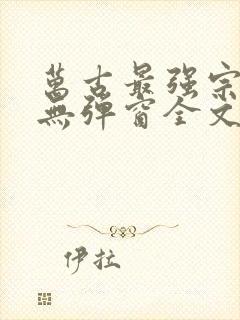 萬古最强宗
無彈窗全文
伊拉